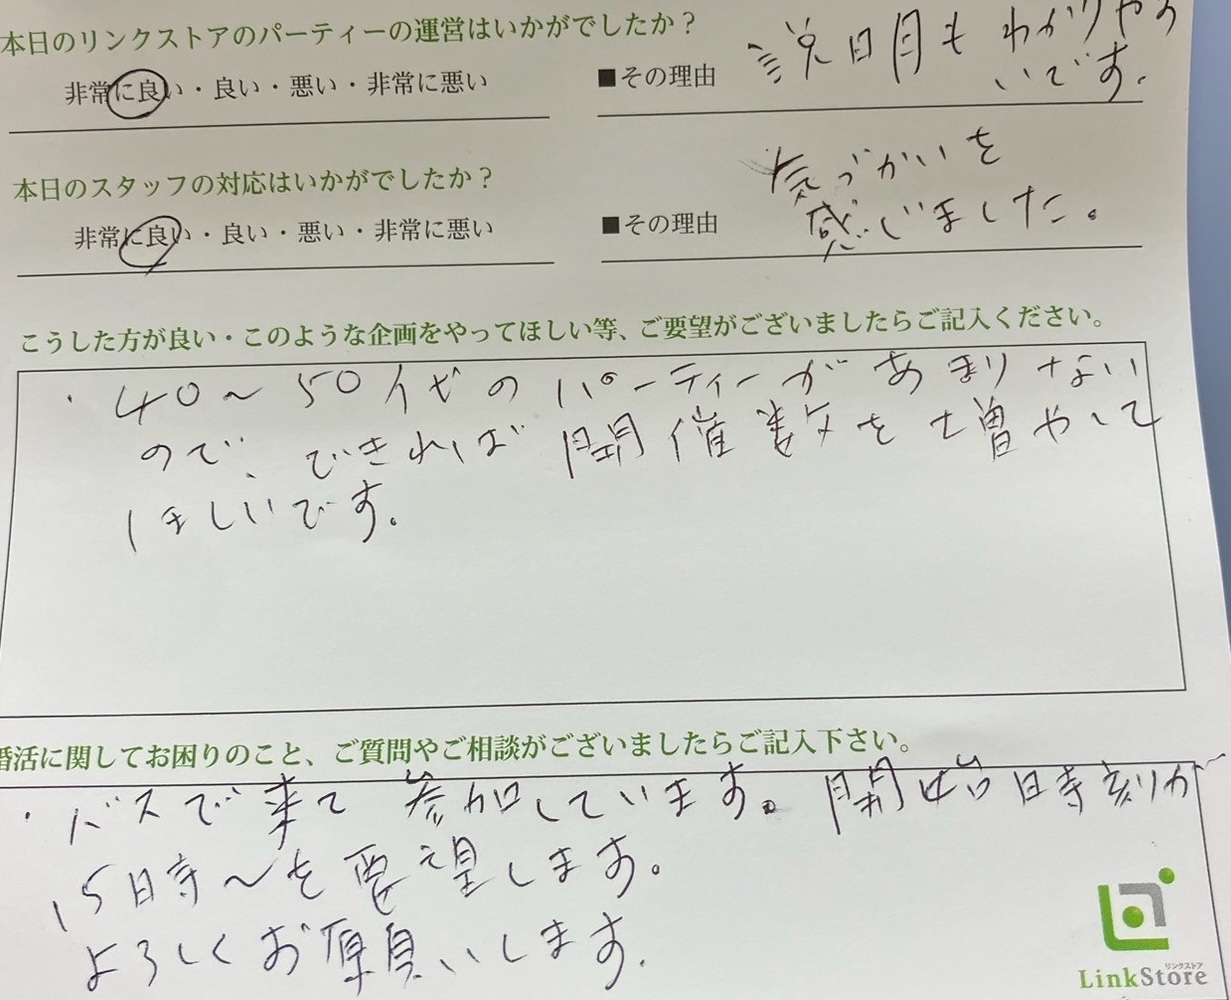 本日のリンクストアのパーティーの運営はいかがでしたか？
非常に良い・良い・悪い・非常に悪い
■その理由
説明もわかりやす
いです。
本日のスタッフの対応はいかがでしたか？
非常に良い・良い・悪い・非常に悪い
■その理由
気づかいを
感じました。
こうした方が良い・このような企画をやってほしい等、ご要望がございましたらご記入ください。
・40～50代のパーティーがあまりない
ので、できれば開催数を増やして
ほしいです。
婚活に関してお困りのこと、ご質問やご相談がございましたらご記入下さい。
・バスで来て参加しています。開始時刻が
15時～を要望します。
よろしくお願いします。
リンクストア
LinkStore